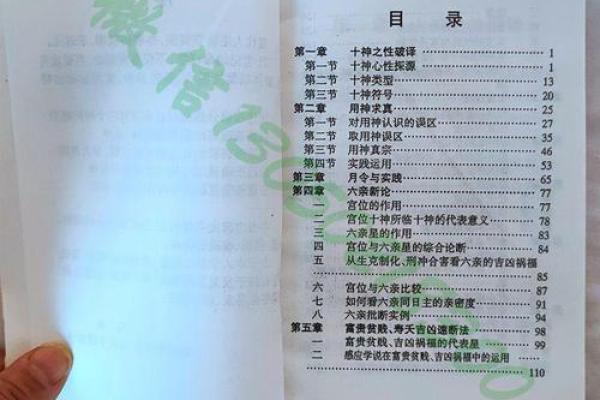 目 录
第一章 十神之性破译 1
第一节 十神心性探源 1
第二节 十神类型 13
第三节 十神符号 20
第二章 用神求真 25
第一节 对用神认识的误区 27
第二节 取用神误区 35
第三节 用神真宗 46
第四节 实践运用 53
第三章 月令与实践 65
第四章 六亲新论 77
一 宫位的作用 77
二 宫位十神所临十神的代表意义 78
三 六亲星的作用 83
四 宫位与六亲星的综合论断 84
五 从生克制化、刑冲合害看六亲的吉凶祸福
85
六 宫位与六亲比较 87
七 如何看六亲同日主的亲密度 91
八 六亲批断实例 94
第五章 富贵贫贱、寿夭吉凶速断法 98
一 富贵贫贱、吉凶祸福的代表星 99
二 感应学说在富贵贫贱、吉凶祸福中的运用
110
微信